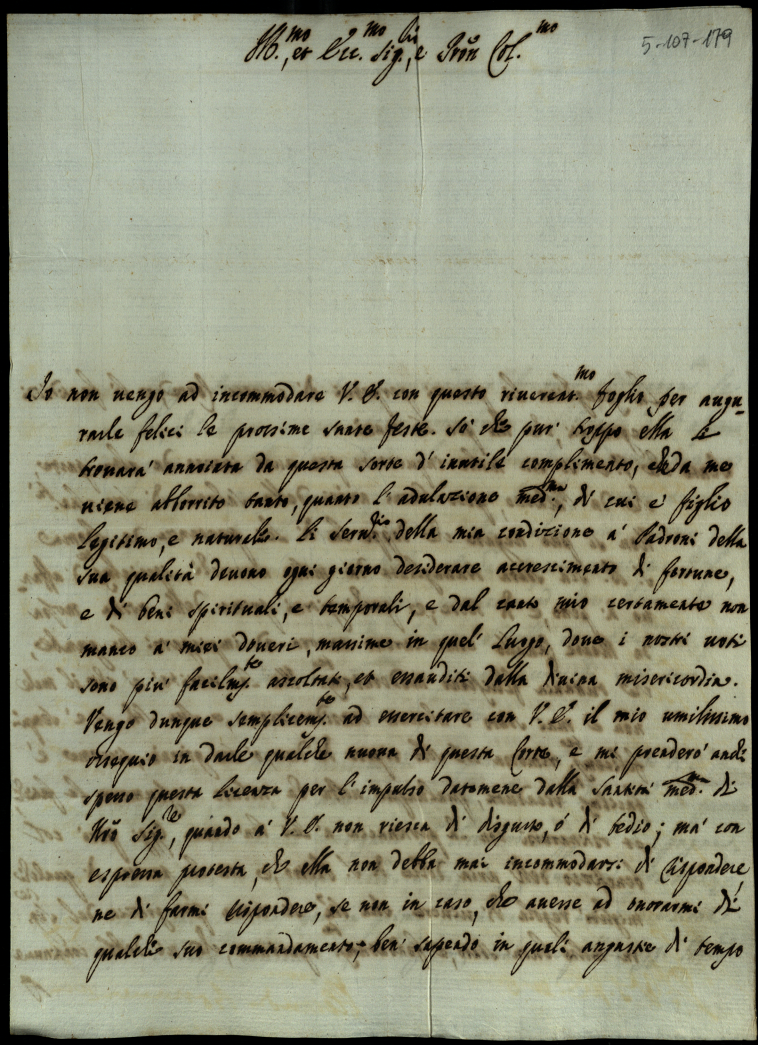 Ill.mo, et Ecc.mo Sig.r, e Pron Col.mo
5-107-179
Io non uengo ad incommodare V. E. con questo riuerent.mo foglio per augu-
rarle felici le prossime sante feste. Sò che pur troppo ella se
trouarà annoiata da questa sorte d' inutile complimento, che da me
uiene abborrito tanto, quanto l' adulazione med.ma, di cui è figlio
legitimo, e naturale. Li seru.ri della mia condizione a' Padroni della
sua qualità deuono ogni giorno desiderare accrescimento di fortune,
e di beni spirituali, e temporali, e dal canto mio certamente non
manco a' miei doueri, massime in quel Luogo, doue i nostri uoti
sono più facilm.te ascoltati, et essauditi dalla diuina misericordia.
Vengo dunque semplicem.te ad essercitare con V. E. il mio umilissimo
ossequio in darle qualche nuoua di questa Corte, e mi prenderò anche
spesso questa licenza per l' impulso datomene dalla Santità med.ma di
Nrō Sig.re, quando a' V. E. non riesca di disgusto, ò di tedio; mà con
espressa protesta, che ella non debba mai incommodarsi di rispondere,
ne di farmi rispondere, se non in caso, che auesse ad onorarmi di
qualche suo commandamento; ben sapendo in quali angustie di tempo